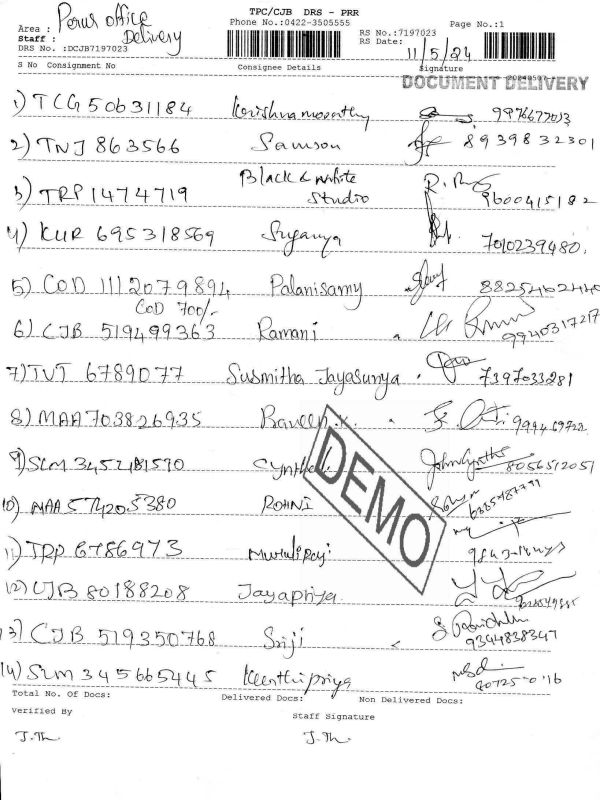 TPC/CJB DRS - PRR
Area : Perus office
Phone No.:0422-3505555
Page No.:1
Staff : Delivery
RS No.:7197023
DRS No. :DCJB7197023
RS Date: 11/5/24
S No Consignment No Consignee Details Signature
DOCUMENT DELIVERY
1) TCG50631184 Krishnamoorthy 9976677013
2) TNJ 863566 Samson 8939832301
3) TRP1474719 Black & white Studio 9600415182
4) KUR 695318569 7010239480.
5) COD 1112079894 Palanisamy
COD 700/-
6) CJB 519499363 Ramani 9940317217
7) TVT 6789077 Susmitha Jayasurya. 7397033281
8) MAA703826935 Raveen.K.
9) SLM 8056512051
10) MAA ROHNI
11) TRP 6786973
12) CJB 80188208 Jayapriya.
13) CJB 519350768 Sriji 9344838347
14) SLM 345665445 Keerthipriya
DEMO
Total No. Of Docs: Delivered Docs: Non Delivered Docs:
Verified By Staff Signature